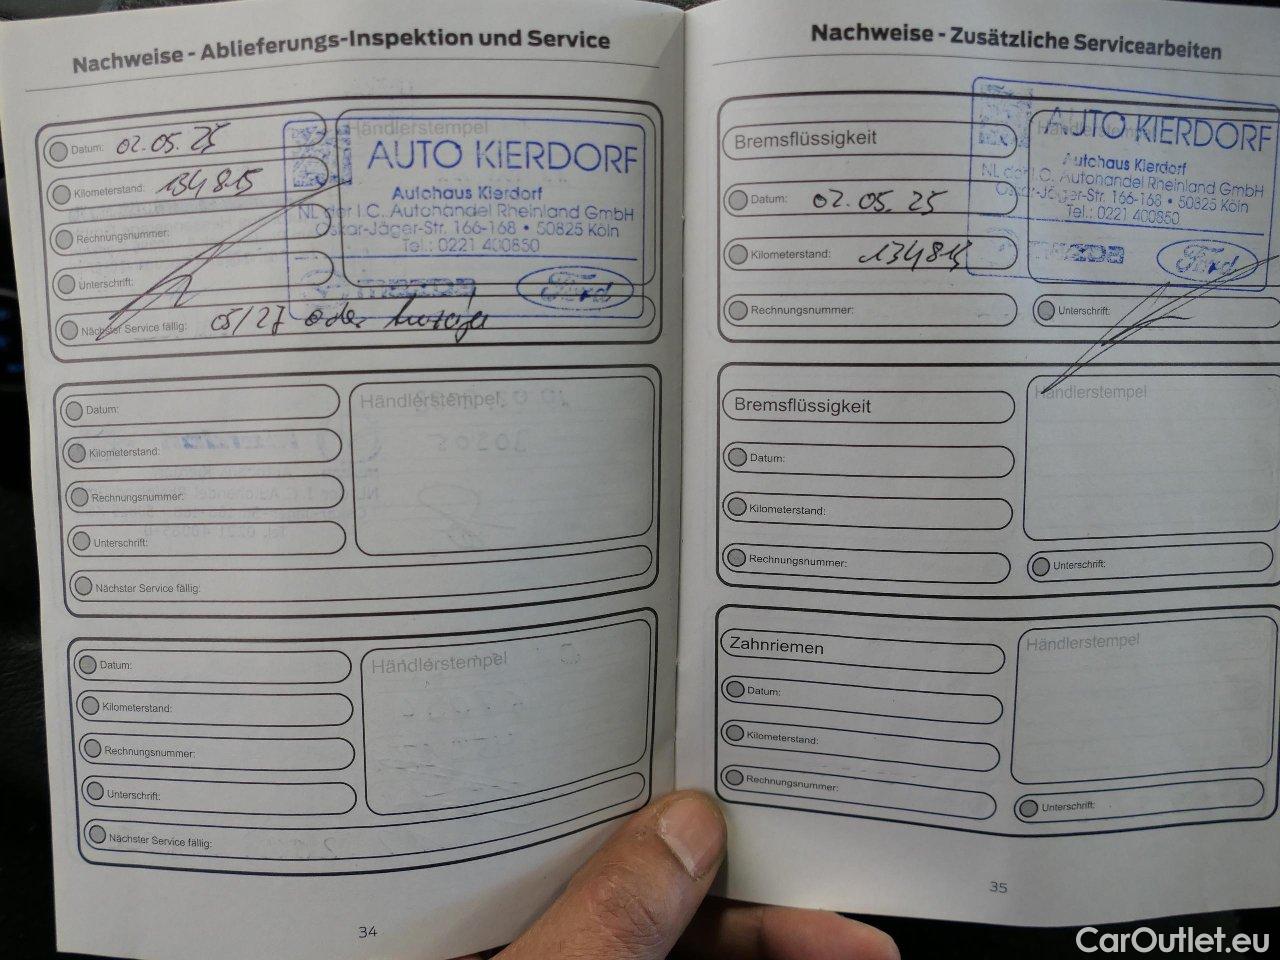 Nachweise - Ablieferungs-Inspektion und Service
Datum: 02.05.25
Kilometerstand: 134815
Rechnungsnummer:
Unterschrift:
Nächster Service fällig: 05/27 oder Anzeige
Händlerstempel
AUTO KIERDORF
Autohaus Kierdorf
NL der I.C. Autohandel Rheinland GmbH
Oskar-Jäger-Str. 166-168 • 50825 Köln
Tel.: 0221 400850
mazda Ford
Datum:
Kilometerstand:
Rechnungsnummer:
Unterschrift:
Nächster Service fällig:
Händlerstempel
Datum:
Kilometerstand:
Rechnungsnummer:
Unterschrift:
Nächster Service fällig:
Händlerstempel
34
Nachweise - Zusätzliche Servicearbeiten
Bremsflüssigkeit
Datum: 02.05.25
Kilometerstand: 134815
Rechnungsnummer:
AUTO KIERDORF
Autohaus Kierdorf
NL der I.C. Autohandel Rheinland GmbH
Oskar-Jäger-Str. 166-168 • 50825 Köln
Tel.: 0221 400850
mazda Ford
Unterschrift:
Bremsflüssigkeit
Datum:
Kilometerstand:
Rechnungsnummer:
Händlerstempel
Unterschrift:
Zahnriemen
Datum:
Kilometerstand:
Rechnungsnummer:
Händlerstempel
Unterschrift:
35
CarOutlet.eu